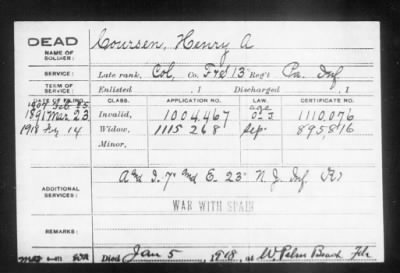 DEAD
NAME OF SOLDIER: Coursen, Henry A
SERVICE: Late rank, Col, Co. F&S 13 Reg't Pa. Inf
TERM OF SERVICE: Enlisted , 1 Discharged , 1
DATE OF FILING. CLASS. APPLICATION NO. LAW. CERTIFICATE NO.
1907 Feb. 25 age
1891 Mar 23 Invalid, 1004467 1110076
1918 14 Widow, 1115268 Sep. 895816
Minor,
ADDITIONAL SERVICES: 7 E. 23 N.J. Inf
WAR WITH SPAIN
REMARKS:
Died Jan 5, 1918, at W. Palm Beach Fla